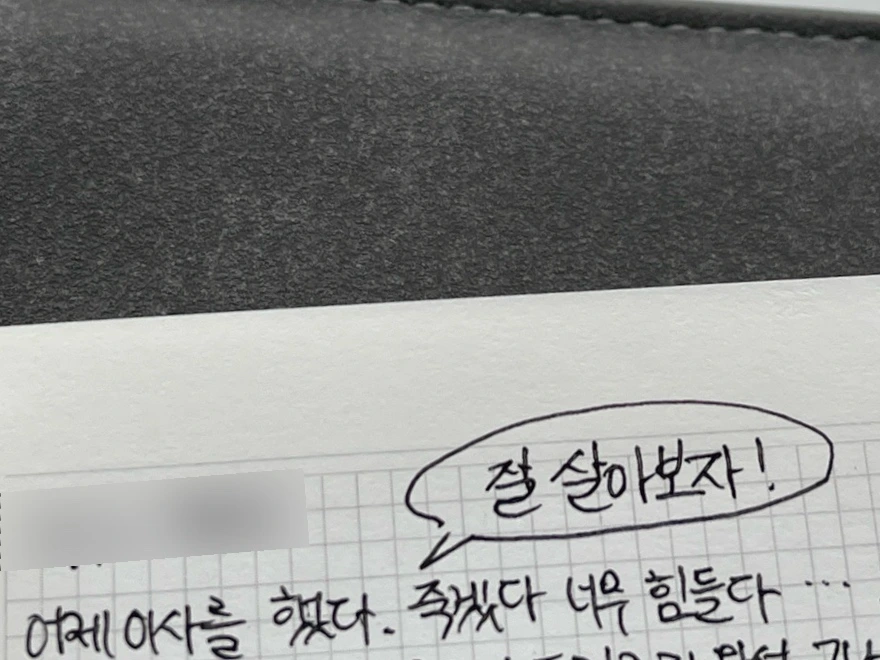 잘 살아보자!
어제 이사를 했다. 죽겠다 너무 힘들다 ...